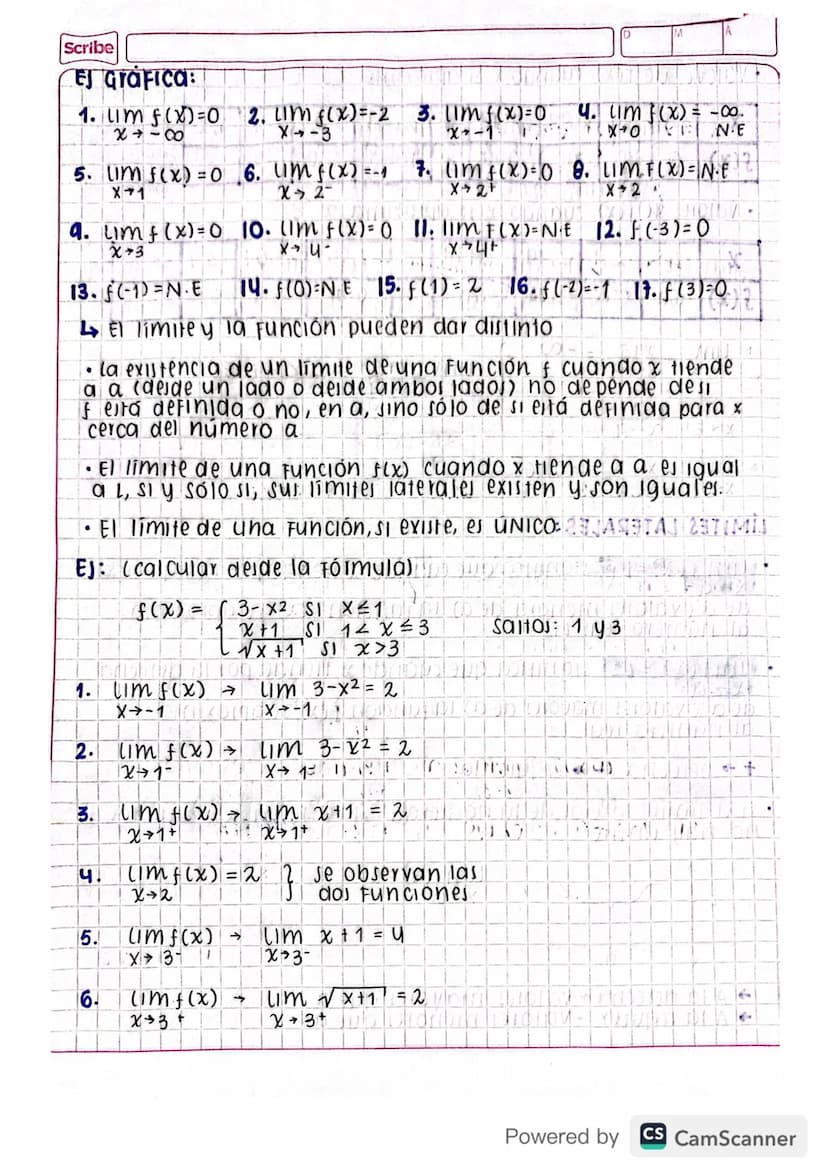 Scribe
D M A
Ej Gráfica:
1. lim f(x)=0 2. lim f(x)=-2 3. lim f(x)=0 4. lim f(x) = -∞.
x→-∞ x→-3 x→-1 x→0 N·E
5. lim f(x) = 0 6. lim f(x) = -1 7. lim f(x)=0 8. lim F(x)=N·E
x→1 x→2⁻ x→2⁺ x→2
9. lim f(x)=0 10. lim f(x)=0 11. lim f(x)=N·E 12. f(-3)=0
x→3 x→4⁻ x→4⁺
13. f(-1)=N·E 14. f(0)=N·E 15. f(1)=2 16. f(-2)=-1 17. f(3)=0
↳ El límite y la función pueden dar distinto
• La existencia de un límite de una función f cuando x tiende
a a (desde un lado o desde ambos lados) no depende de si
f está definida o no, en a, sino sólo de si está definida para x
cerca del número a
• El límite de una función f(x) cuando x tiende a a es igual
a L, si y sólo si, sus límites laterales existen y son iguales.
• El límite de una función, si existe, es ÚNICO.
Ej: (calcular desde la fórmula)
f(x) = { 3-x² si x≤1
x+1 si 1< x ≤ 3 Saltos: 1 y 3
√x+1 si x>3
1. lim f(x) → lim 3-x² = 2
x→-1 x→-1
2. lim f(x) → lim 3-x² = 2
x→1⁻ x→1⁻
3. lim f(x) → lim x+1 = 2
x→1⁺ x→1⁺
4. lim f(x) = 2 } se observan las
x→2 dos funciones
5. lim f(x) → lim x+1 = 4
x→3⁻ x→3⁻
6. lim f(x) → lim √x+1 = 2
x→3⁺ x→3⁺
Powered by CS CamScanner